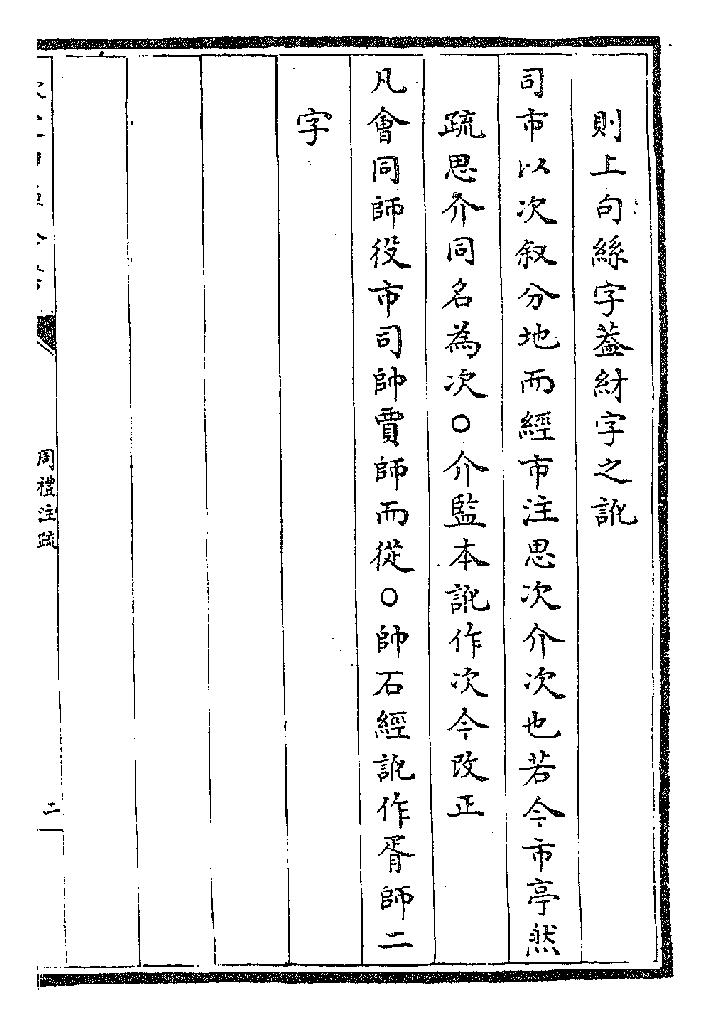 則上句絲字蓋材字之訛
司市以次敘分地而經市注思次介次也若今市亭然
疏思介同名為次○介監本訛作次今改正
凡會同師役市司帥賈師而從○帥石經訛作胥師二
字
周禮注疏
二